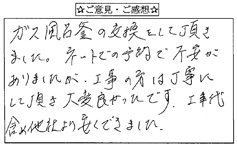 ☆ご意見・ご感想☆
ガス風呂釜の交換をして頂き
ました。ネットでの予約で不安が
ありましたが、工事の方は丁寧に
して頂き大変良かったです。工事代
含め他社より安くできました。